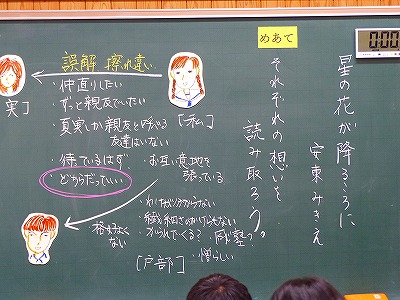 星の花が降るころに
安東みきえ
めあて
それぞれの想いを
読み取ろう。
誤解 擦れ違い
実]
[私]
・仲直りしたい
・ずっと親友でいたい
・真実しか親友と呼べる
友達はいない
・待っているはず
・お互い意地を
張っている
・どちらだっていい
・わけが分からない
・繊細さのかけらもない
・がられでくる?
同じ塾?
格好よく
ない
・憎らしい
[戸部]
0:00